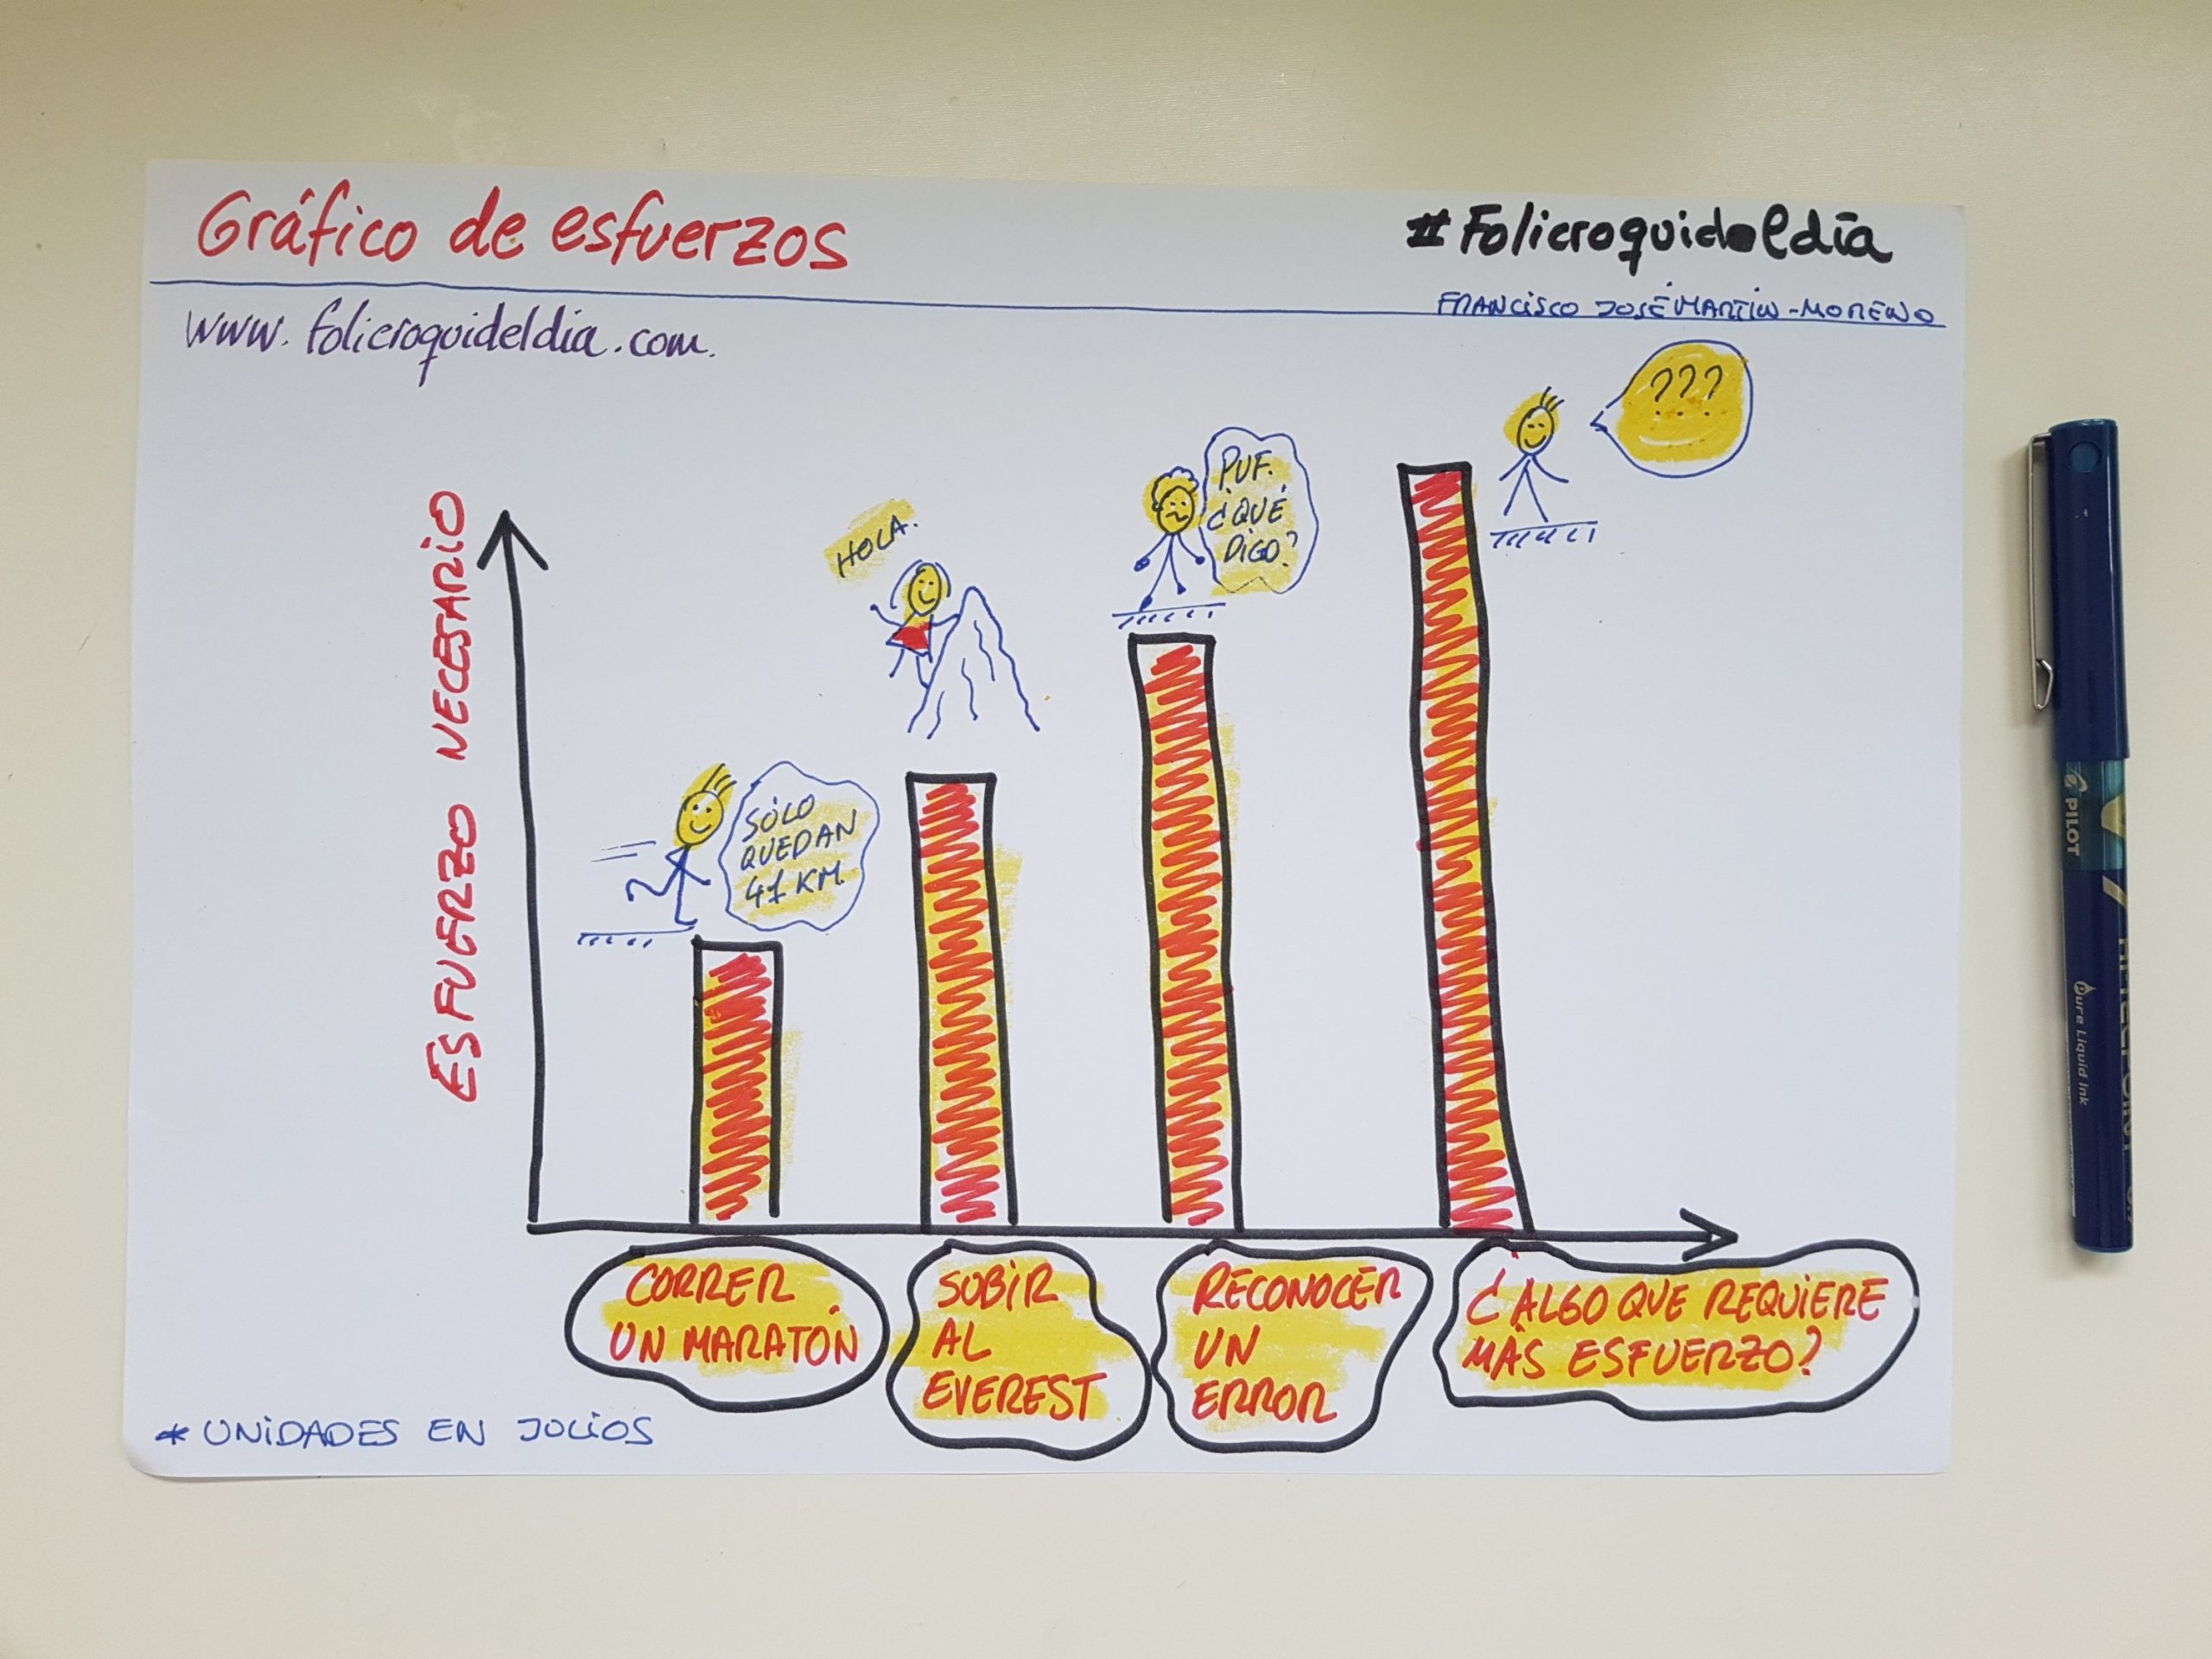 Gráfico de esfuerzos
#Folicroquideldía
FRANCISCO JOSÉ MARTIN-MORENO
www.folicroquideldia.com.
???
PUF.
¿QUÉ
DIGO?
HOLA.
SÓLO
QUEDAN
41 KM.
ESFUERZO NECESARIO
CORRER
UN MARATÓN
SUBIR
AL
EVEREST
RECONOCER
UN
ERROR
¿ALGO QUE REQUIERE
MÁS ESFUERZO?
* UNIDADES EN JULIOS
PILOT
Pure Liquid Ink